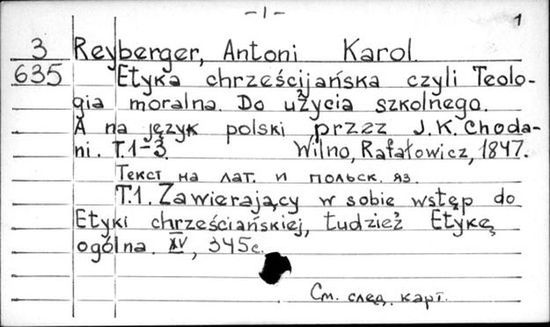 -1-
1
3 Reyberger, Antoni Karol
635 Etyka chrześcijańska czyli Teolo-
gia moralna. Do użycia szkolnego.
A na język polski przez J.K. Choda-
ni. T.1-3. Wilno, Rafałowicz, 1847.
Текст на лат. и польск. яз.
T.1. Zawierający w sobie wstęp do
Etyki chrześciańskiej, tudzież Etykę
ogólna. XV, 345c.
См. след. карт.